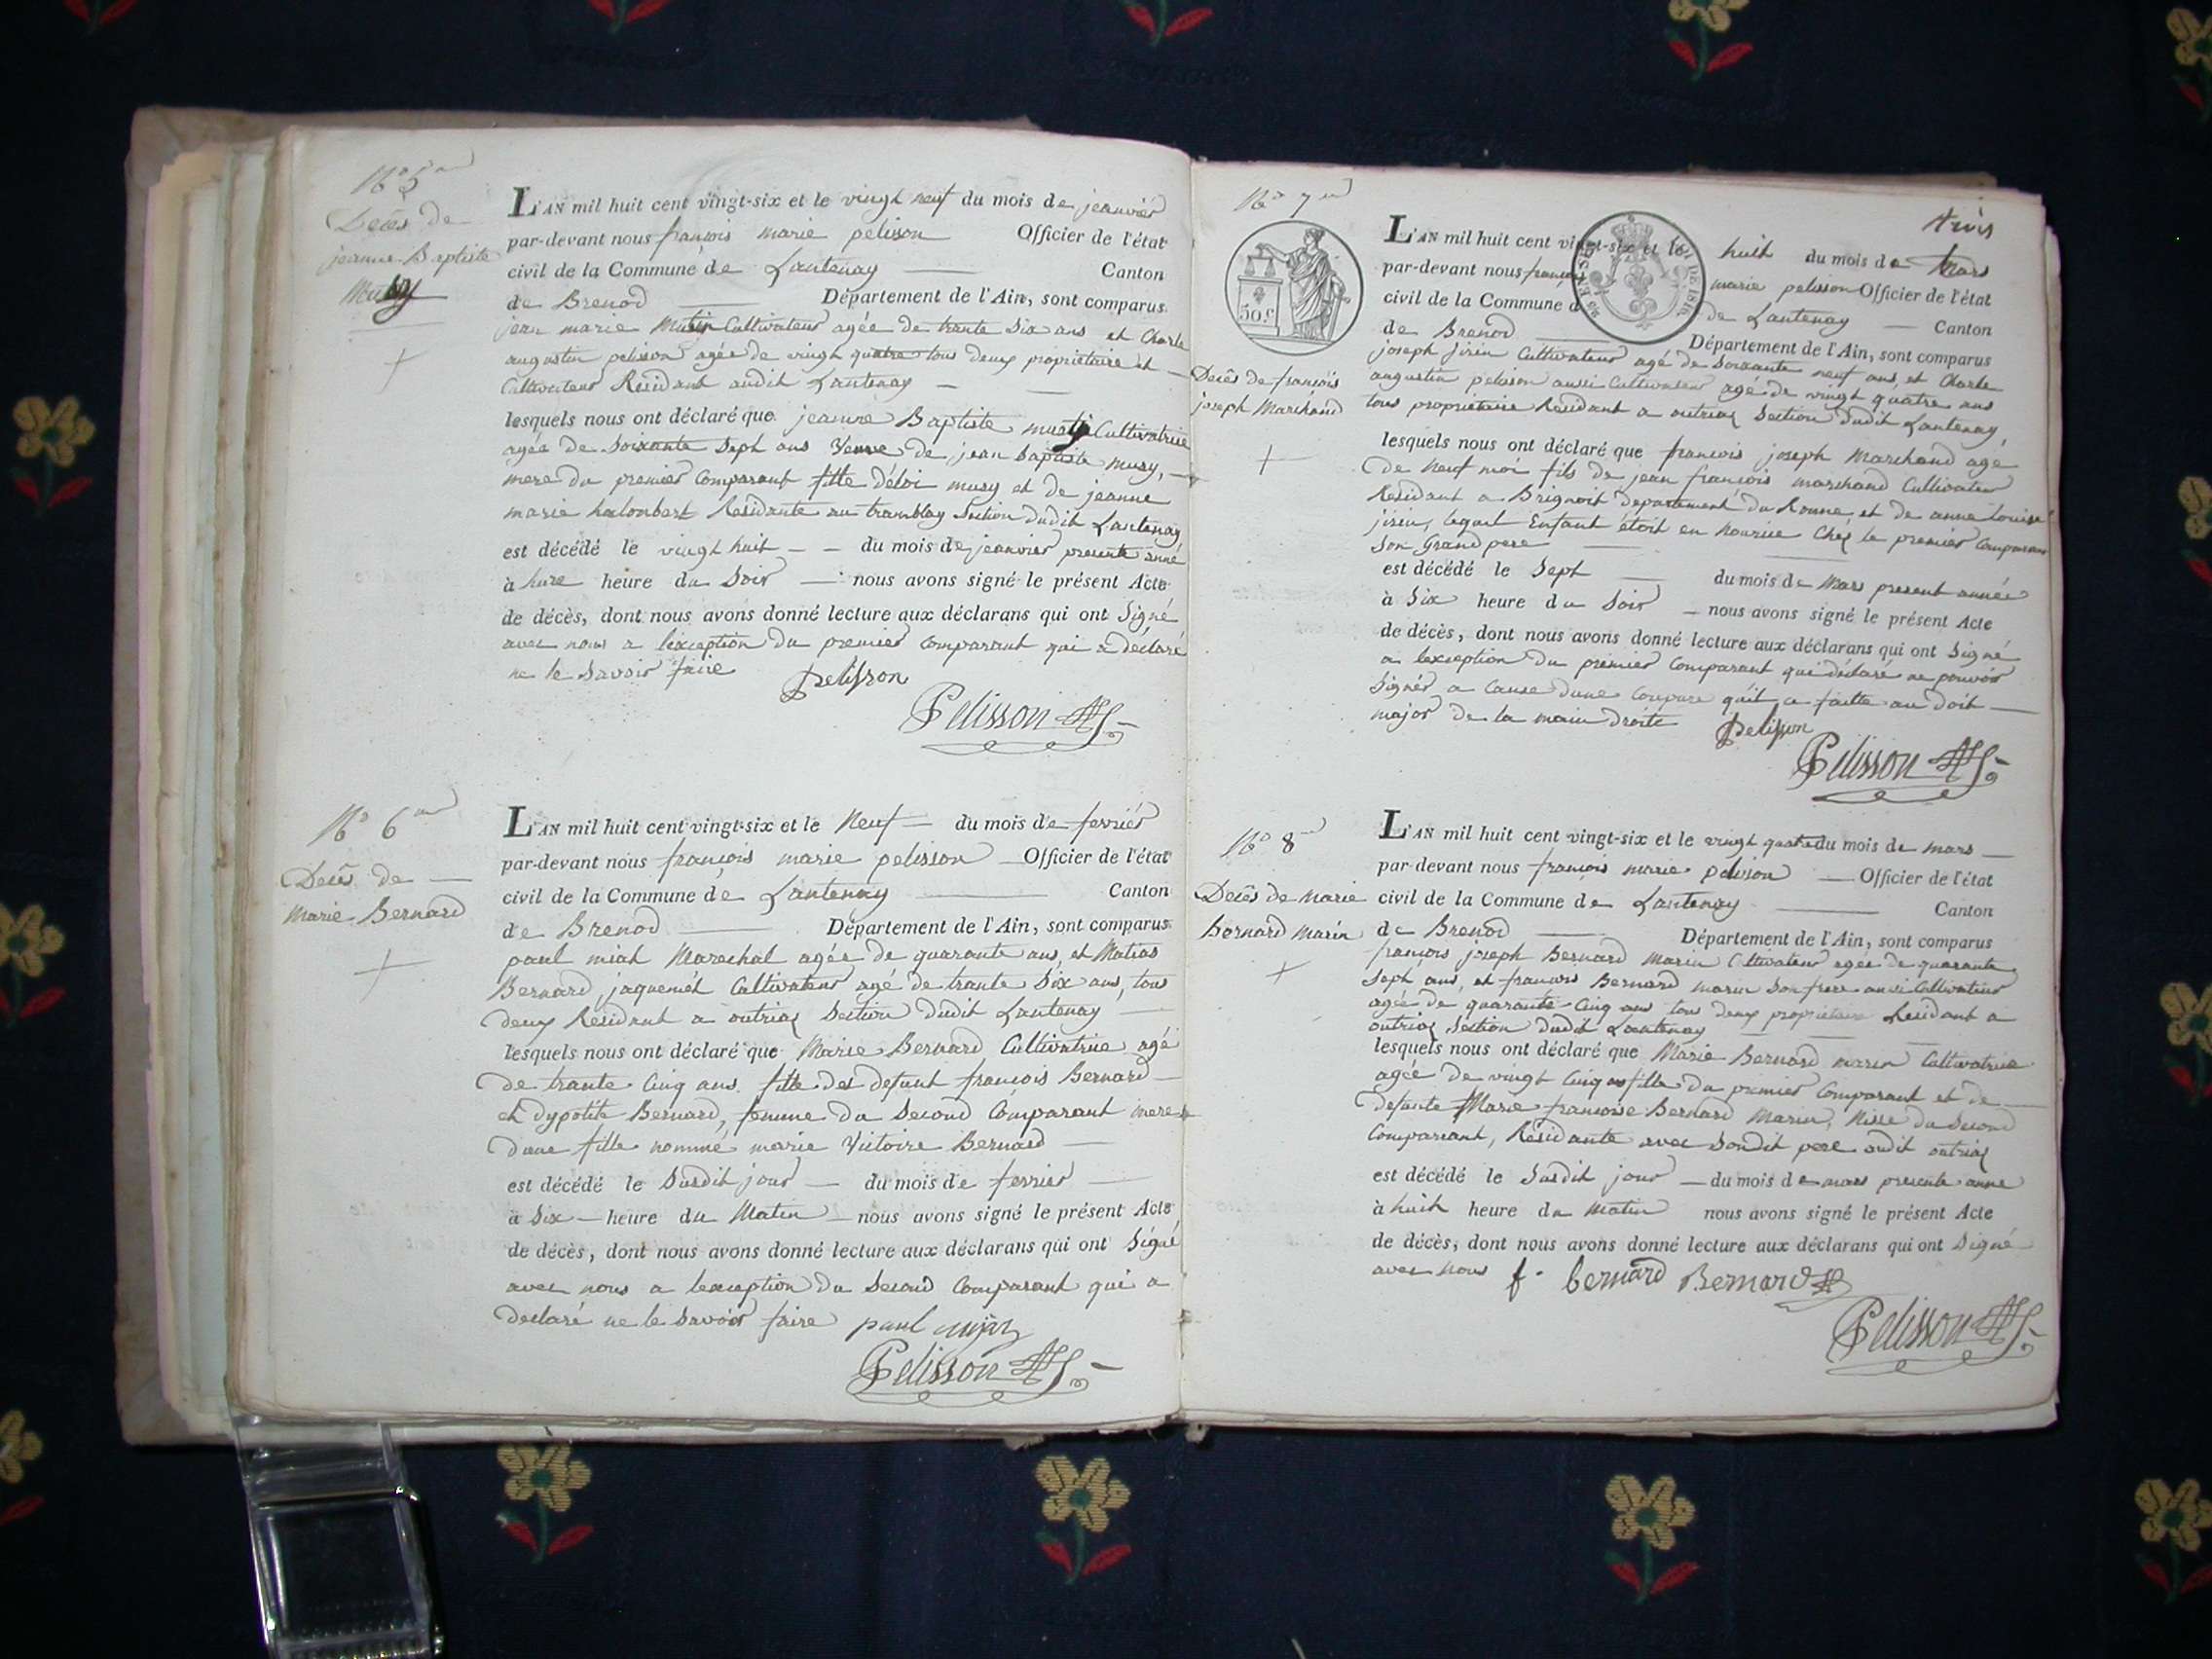 N° 5
Decés de
jeanne Baptiste
Musy
L'AN mil huit cent vingt-six et le vingt neuf du mois de jeanvier
par-devant nous françois marie pelisson Officier de l'état
civil de la Commune de Lantenay Canton
de Brenod Département de l'Ain, sont comparus
jean marie Cultivateur agée de trante six ans et Charle
augustin pelisson agée de vingt quatre tous deux propriétaire et
Cultivateur Résidant audit Lantenay
lesquels nous ont déclaré que jeanne Baptiste Cultivatrice
agée de Soixante Sept ans Veuve de jean baptiste musy,
mere du premier Comparant fille d'éloi musy et de jeanne
marie Residante au tramblay Section dudit Lantenay
est décédé le vingt huit du mois de jeanvier presente anné
à hure heure du Soir nous avons signé le présent Acte
de décès, dont nous avons donné lecture aux déclarans qui ont Signé
avec nous a lexception du premier Comparant qui a déclaré
ne le Savoir faire Pelisson
Pelisson
N° 6
Decés de
Marie Bernard
L'AN mil huit cent vingt-six et le Neuf du mois de fevriér
par-devant nous françois marie pelisson Officier de l'état
civil de la Commune de Lantenay Canton
de Brenod Département de l'Ain, sont comparus
paul miat Marechal agée de quarante ans, et Matias
Bernard jaquemét Cultivateur agé de trante Six ans, tous
deux Résidant a outriaz Section dudit Lantenay
lesquels nous ont déclaré que Marie Bernard, Cultivatrice agé
de trante Cinq ans fille des defunt françois Bernard
et dypolite Bernard, femme du Second Comparant mere
dune fille nommé marie Victoire Bernard
est décédé le Susdit jour du mois de fevrier
à Six heure du Matin nous avons signé le présent Acte
de décès, dont nous avons donné lecture aux déclarans qui ont Signé
avec nous a lexception du Second Comparant qui a
declaré ne le Savoir faire paul
Pelisson
N° 7
50 c.
Decês de françois
joseph Marchand
trois
L'AN mil huit cent vingt-six et le huit du mois de Mars
par-devant nous françois marie pelisson Officier de l'état
civil de la Commune de Lantenay Canton
de Brenod Département de l'Ain, sont comparus
joseph jirin Cultivateur agé de Soixante neuf ans, et Charle
augustin pelisson aussi Cultivateur agé de vingt quatre ans
tous proprietaire Residant a outriaz Section dudit Lantenay,
lesquels nous ont déclaré que françois joseph Marchand agé
de Neuf moi fils de jean françois marchand Cultivateur
Residant a Brignoit departement du Ronne, et de anne Louise
jirin, lequel Enfant étoit en Nourice Chéz le premier Comparant
Son Grand pere
est décédé le Sept du mois de Mars present année
à Six heure du Soir nous avons signé le présent Acte
de décès, dont nous avons donné lecture aux déclarans qui ont Signé
a lexception du premier Comparant qui déclaré ne pouvoir
Signér a Cause dune Coupure quil a faitte au doit
major de la main droite Pelisson
Pelisson
N° 8
Decês de Marie
Bernard Marin
L'AN mil huit cent vingt-six et le vingt quatre du mois de mars
par-devant nous françois marie pelisson Officier de l'état
civil de la Commune de Lantenay Canton
de Brenod Département de l'Ain, sont comparus
françois joseph Bernard Marin Cultivateur agée de quarante
Sept ans, et francois Bernard marin Son frere aussi Cultivateur
agée de quarante Cinq ans tous deux proprietaire Residant a
outriaz Section dudit Lantenay
lesquels nous ont déclaré que Marie Bernard marin Cultivatrice
agée de vingt Cinq ans fille du premier Comparant et de
defunte Marie francoise Bernard Marin, Nisse du Second
Comparant, Residante avec Sondit pere audit outriaz
est décédé le Susdit jour du mois de mars presente anne
à huit heure du Matin nous avons signé le présent Acte
de décès, dont nous avons donné lecture aux déclarans qui ont Signé
avec nous f. bernard Bernard
Pelisson